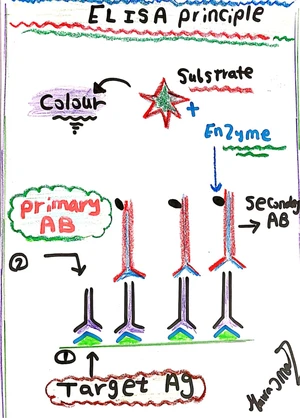 ELISA principle
Substrate
Colour
+
Enzyme
primary
AB
Secondary
AB
②
①
Target Ag